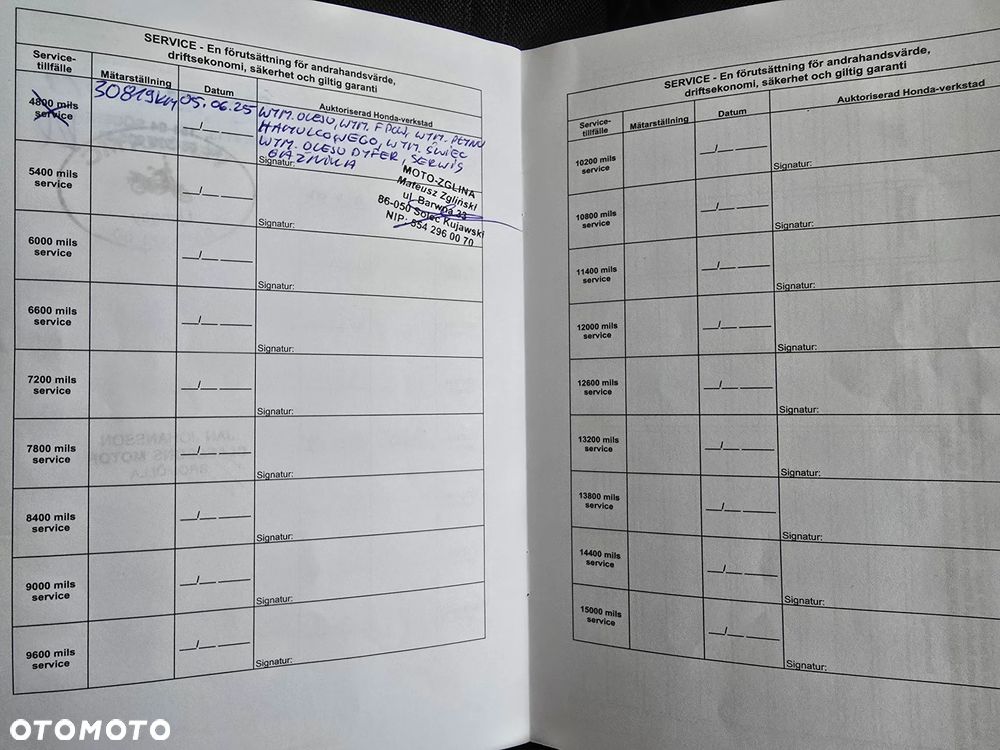 SERVICE - En förutsättning för andrahandsvärde,
driftsekonomi, säkerhet och giltig garanti
Service-
tillfälle
Mätarställning
Datum
Auktoriserad Honda-verkstad
4800 mils
service
30819km
05.06.25
WYM. OLEJU, WYM. F POW, WYM. PŁYNU
HAMULCOWEGO, WYM. ŚWIEC
WYM. OLEJU DYFER, SERWIS
GAŹNIKA
Signatur:
MOTO-ZGLINA
Mateusz Zgliński
ul. Barwna 23
86-050 Solec Kujawski
NIP: 554 296 00 70
5400 mils
service
__/__ ____
Signatur:
6000 mils
service
__/__ ____
Signatur:
6600 mils
service
__/__ ____
Signatur:
7200 mils
service
__/__ ____
Signatur:
7800 mils
service
__/__ ____
Signatur:
8400 mils
service
__/__ ____
Signatur:
9000 mils
service
__/__ ____
Signatur:
9600 mils
service
__/__ ____
Signatur:
SERVICE - En förutsättning för andrahandsvärde,
driftsekonomi, säkerhet och giltig garanti
Service-
tillfälle
Mätarställning
Datum
Auktoriserad Honda-verkstad
10200 mils
service
__/__ ____
Signatur:
10800 mils
service
__/__ ____
Signatur:
11400 mils
service
__/__ ____
Signatur:
12000 mils
service
__/__ ____
Signatur:
12600 mils
service
__/__ ____
Signatur:
13200 mils
service
__/__ ____
Signatur:
13800 mils
service
__/__ ____
Signatur:
14400 mils
service
__/__ ____
Signatur:
15000 mils
service
__/__ ____
Signatur:
OTOMOTO